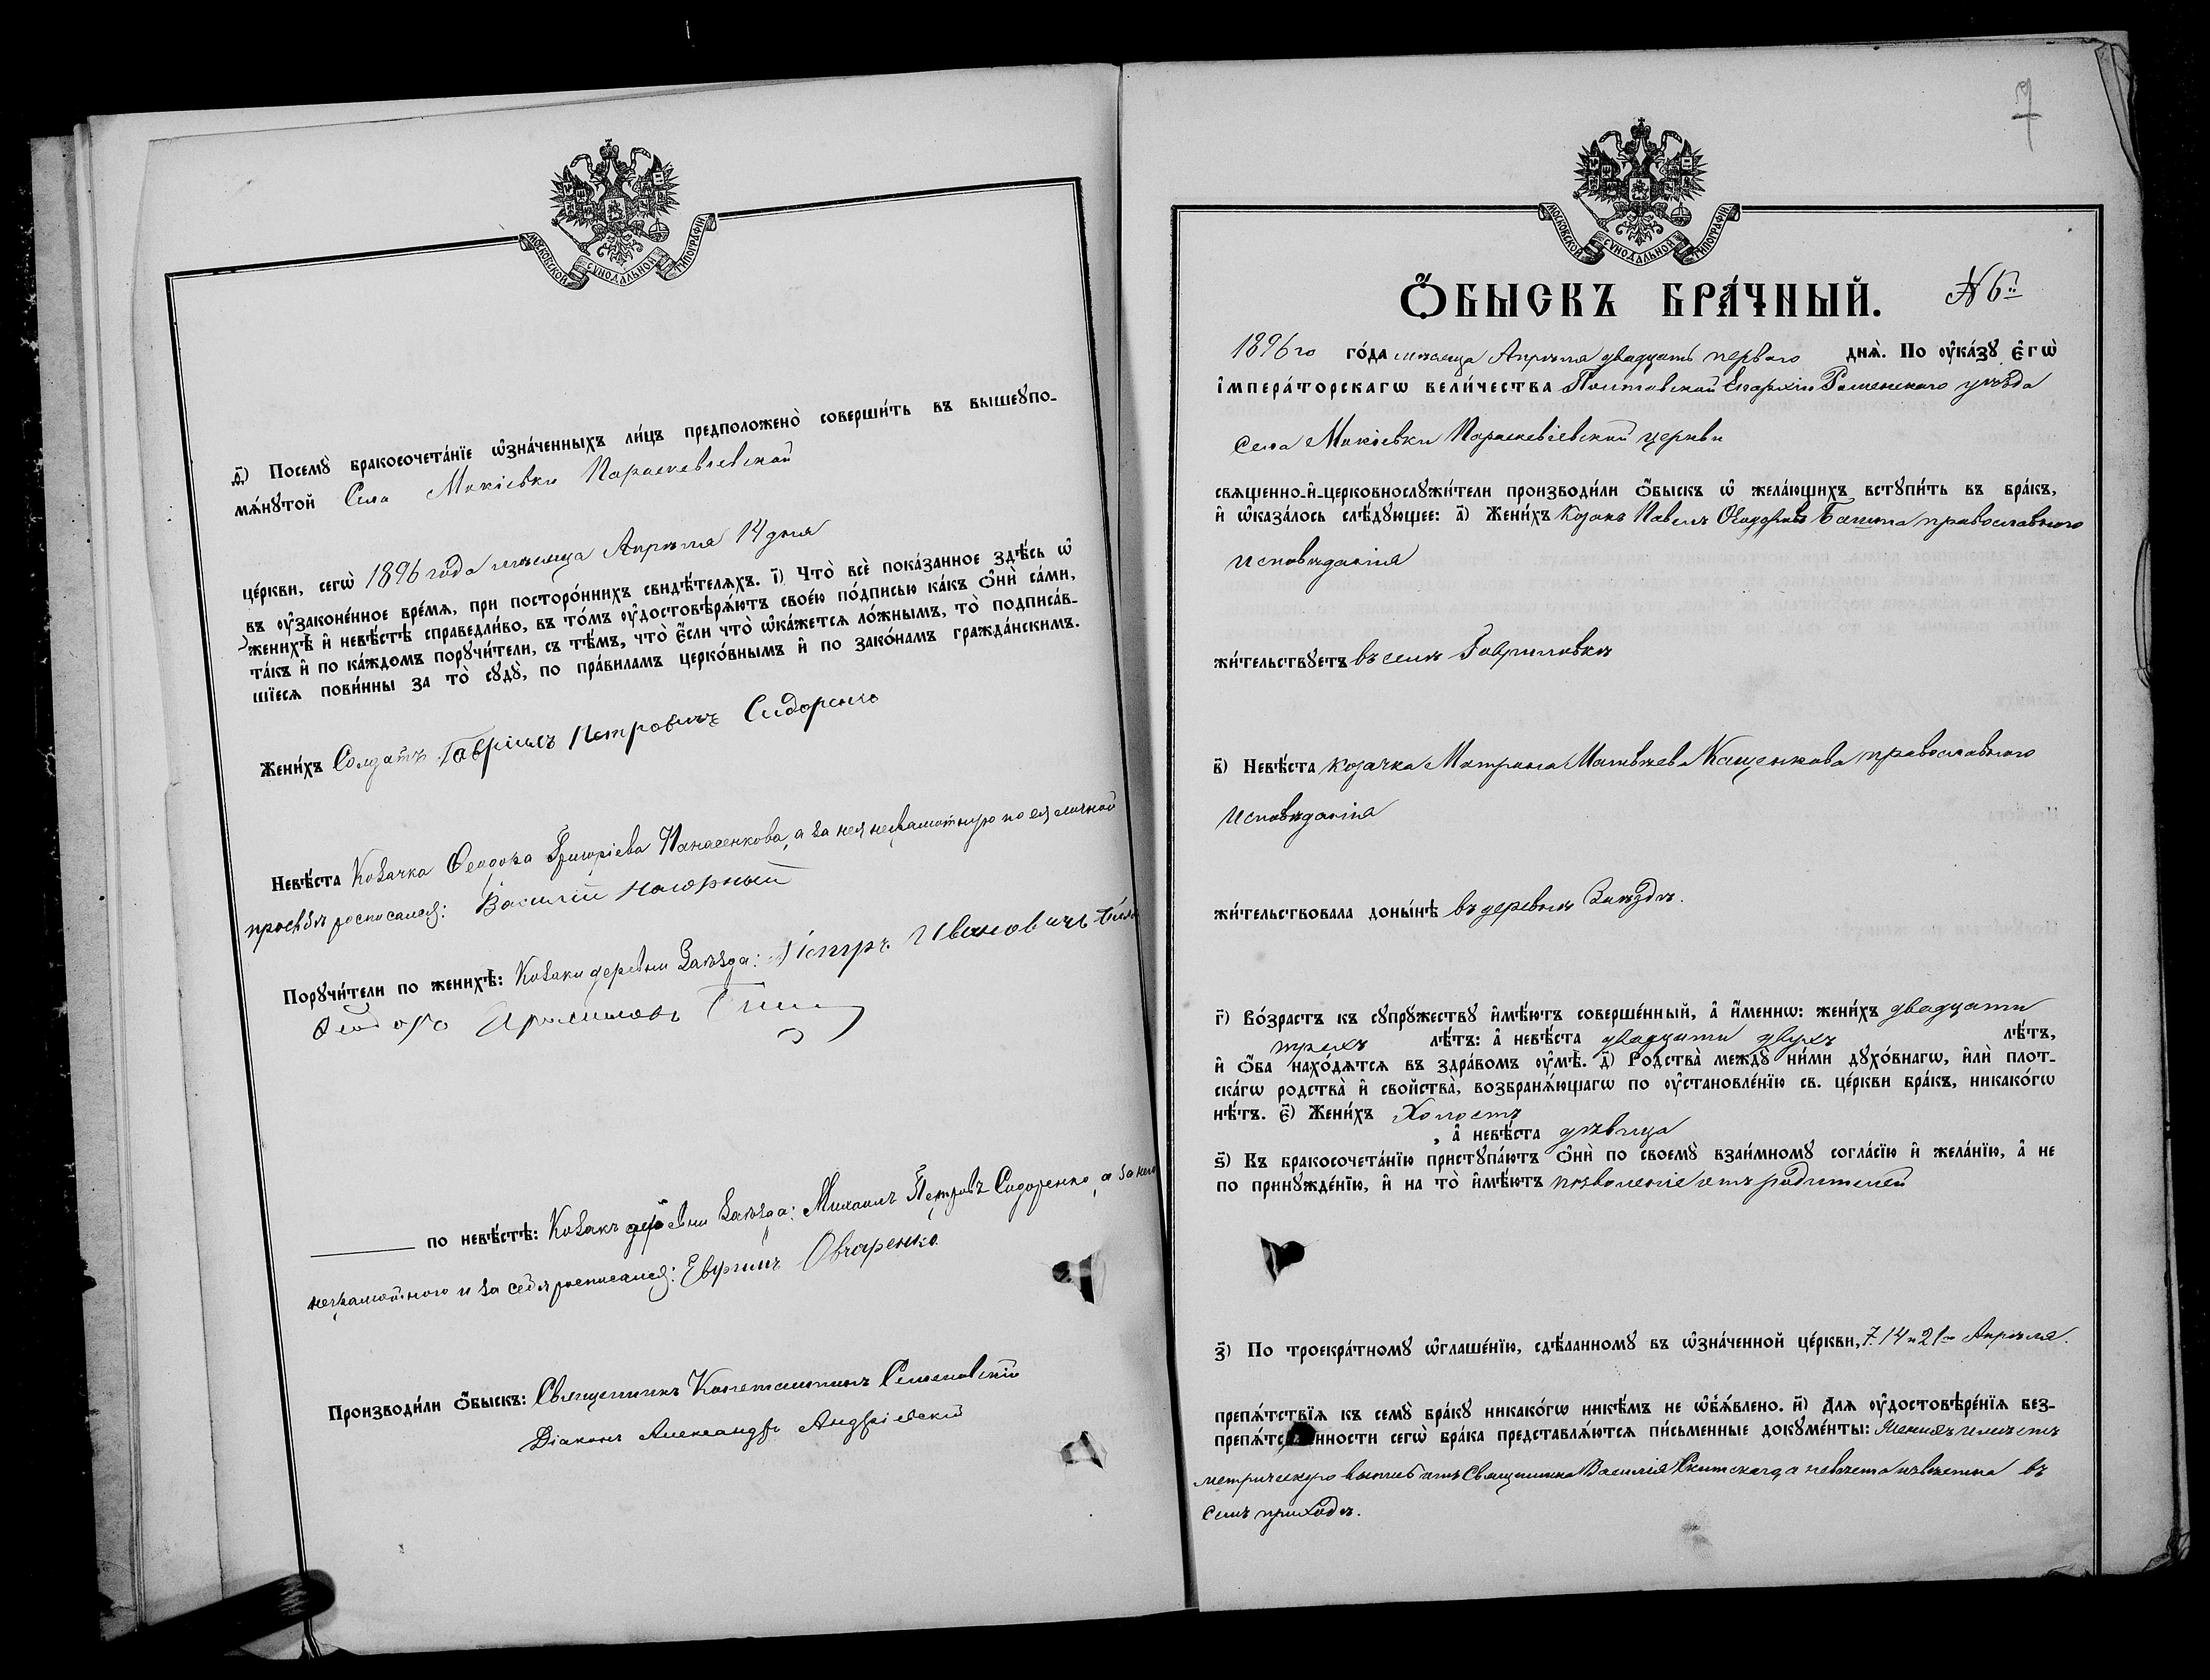 МОСКОВСКОЙ СУНОДАЛЬНОЙ ТИПОГРАФІИ
д҃і) Посемꙋ̀ бракосочета́нїе ѡ҆зна́ченныхъ ли́цъ предположено̀ соверши́ть въ вышеꙋпо-
мѧ́нꙋтой Села Мокіевки Параскевіевской
це́ркви, сегѡ̀ 1896 года мѣсяца Апрѣля 14 дня
въ ᲂу҆законе́нное вре́мѧ, при посторо́ннихъ свидѣ́телѧхъ. і҃) Что̀ всѐ пока́занное здѣ́сь ѡ҆
женихѣ̀ и҆ невѣ́стѣ справедли́во, въ то́мъ ᲂу҆достовѣрѧ́ютъ свое́ю по́дписью ка́къ ѻ҆нѝ са́ми,
та́къ и҆ по ка́ждомъ порꙋчи́тели, съ тѣ́мъ, что̀ є҆́сли что̀ ѡ҆ка́жетсѧ ло́жнымъ, то̀ подписа́в-
шїесѧ пови́нны за то̀ сꙋдꙋ̀, по пра́виламъ церко́внымъ и҆ по зако́намъ гражда́нскимъ.
Жени́хъ Солдатъ Гавріилъ Петровичъ Сидоренко
Невѣ́ста Козачка Ѳеодора Григоріева Панасенкова, а за нея неграмотную по ея личной
просьбѣ росписался: Василій Нагорный
Порꙋчи́тели по женихѣ̀: Козаки деревни Заѣзда: Петръ Ивановичъ
Ѳеодоръ
по невѣ́стѣ: Козакъ деревни Заѣзда: Михаилъ Петровъ Сидоренко, а за него
неграмотного и за себя росписался: Евфимъ Овчаренко.
Производи́ли ѻ҆́быскъ: Священникъ Константинъ Семеновскій
Діаконъ Александръ Андріевскій
7
МОСКОВСКОЙ СУНОДАЛЬНОЙ ТИПОГРАФІИ
Ѻ҆́БЫСКЪ БРА́ЧНЫЙ. № 6й
1896го го́да мѣсяца Апрѣля двадцать первого днѧ̀. По ᲂу҆ка́зꙋ є҆гѡ̀
і҆мпера́торскагѡ вели́чества Полтавской Епархіи Роменского уѣзда
Села Мокіевки Параскевіевской церкви
свѧщенно-и҆-церковнослꙋжи́тели производи́ли ѻ҆́быскъ ѡ҆ жела́ющихъ встꙋпи́ть въ бра́къ,
и҆ ѡ҆каза́лось слѣ́дꙋющее: а҃) Жени́хъ Козакъ Павелъ Ѳеодоровъ православного
исповѣданія
жи́тельствꙋетъ въ селѣ Гавриловкѣ
в҃) Невѣ́ста козачка Матрона Матвѣева Кащенкова православного
исповѣданія
жи́тельствовала доны́нѣ въ деревнѣ Заѣздѣ.
г҃) Во́зрастъ къ сꙋпрꙋ́жествꙋ и҆мѣ́ютъ соверше́нный, а҆ и҆́менно: жени́хъ двадцати
трехъ лѣ́тъ: а҆ невѣ́ста двадцати двухъ лѣ́тъ,
и҆ ѻ҆́ба нахо́дѧтсѧ въ здра́вомъ ᲂу҆мѣ̀. д҃) Родства̀ междꙋ̀ ни́ми дꙋхо́внагѡ, и҆лѝ плот-
ска́гѡ родства̀ и҆ свойства̀, возбранѧ́ющагѡ по ᲂу҆становле́нїю св. це́ркви бра́къ, никако́гѡ
нѣ́тъ. є҃) Жени́хъ Холостъ
, а҆ невѣ́ста дѣвица
ѕ҃) Къ бракосочета́нїю пристꙋпа́ютъ ѻ҆нѝ по своемꙋ̀ взаи́мномꙋ согла́сїю и҆ жела́нїю, а҆ не
по принꙋжде́нїю, и҆ на то̀ и҆мѣ́ютъ позволеніе отъ родителей
з҃) По троекра́тномꙋ ѡ҆глаше́нїю, сдѣ́ланномꙋ въ ѡ҆зна́ченной це́ркви, 7. 14 и 21го Апрѣля.
препѧ́тствїѧ къ семꙋ̀ бра́кꙋ никако́гѡ никѣ́мъ не ѡ҆б̾ѧ́влено. и҃) Длѧ ᲂу҆достовѣре́нїѧ без-
препѧ́тственности сегѡ̀ бра́ка представлѧ́ютсѧ пи́сьменные докꙋме́нты: Женихъ имѣетъ
метрическую выпись отъ Священника Василія Скитского, а невѣста извѣстна въ
семъ приходѣ.